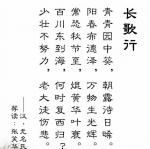 长歌行
青青园中葵，朝露待日晞。
阳春布德泽，万物生光辉。
常恐秋节至，焜黄华叶衰。
百川东到海，何时复西归？
少壮不努力，老大徒伤悲。
——汉·无名氏
荐读：张